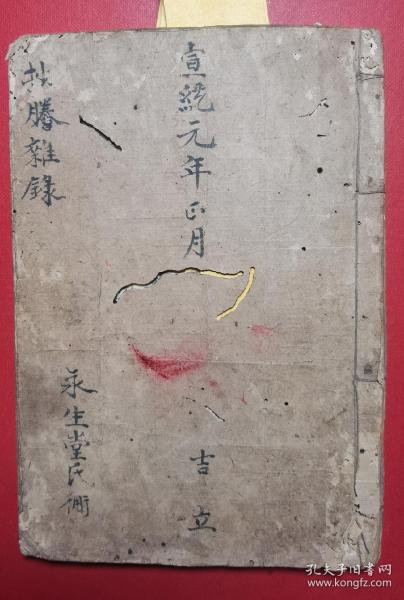 宣統元年正月
吉立
抄謄雜錄
永生堂氏
孔夫子旧书网
www.kongfz.com